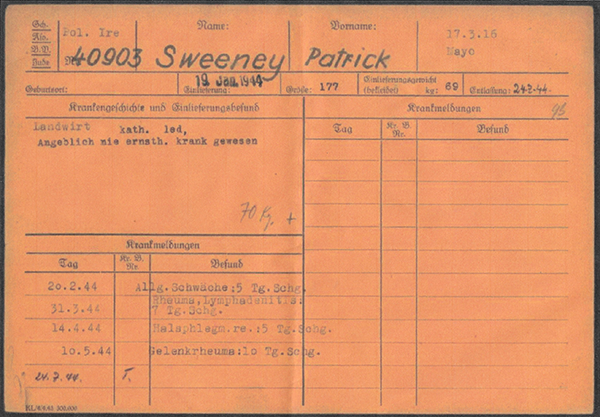 Sch.
Pol. Ire
Name:
Vorname:
17.3.16
Mayo
B.V.
Jude
Nr.
40903 Sweeney Patrick
Geburtsort:
19. Jan. 1944
Einlieferung:
Größe: 177
Einlieferungsgewicht
(bekleidet) kg: 69
Entlassung: 24.7.44.
Krankengeschichte und Einlieferungsbefund
Landwirt kath. led,
Angeblich nie ernsth. krank gewesen
70 Kg. +
Krankmeldungen
Tag
Kr. B.
Nr.
Befund
20.2.44 Allg.Schwäche:5 Tg.Schg.
Rheuma,Lymphadenitis:
31.3.44 7 Tg.Schg.
14.4.44 Halsphlegm.re.:5 Tg.Schg.
10.5.44 Gelenkrheuma:10 Tg.Schg.
24.7.44.
Krankmeldungen
Tag
Kr. B.
Nr.
Befund